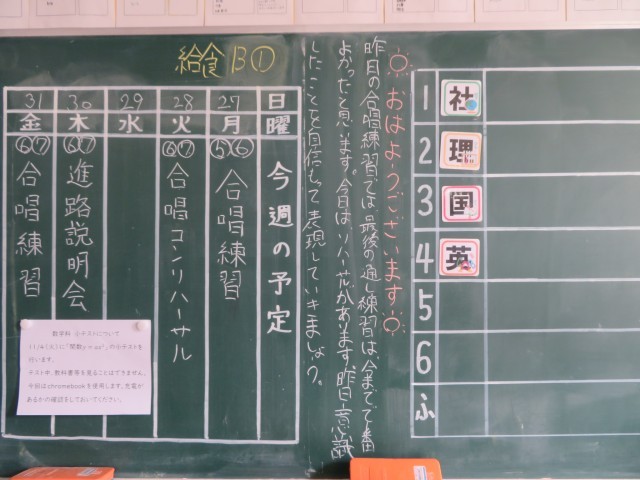 給食 B①
日 27 28 29 30 31
曜 月 火 水 木 金
今週の予定
⑤⑥
合唱練習
⑥⑦
合唱コンリハーサル
⑥⑦
進路説明会
⑥⑦
合唱練習
数学科 小テストについて
11/4(火)に「関数y=ax²」の小テストを
行います。
テスト中、教科書等を見ることはできません。
今回はchromebookを使用します。充電が
あるかの確認をしておいてください。
おはようございます
昨日の合唱練習では最後の通し練習は、今までで一番
よかったと思います。今日はリハーサルがあります。昨日意識
したことを自信もって表現していきましょう。
1 社
2 理
3 国
4 英
5
6
ふ